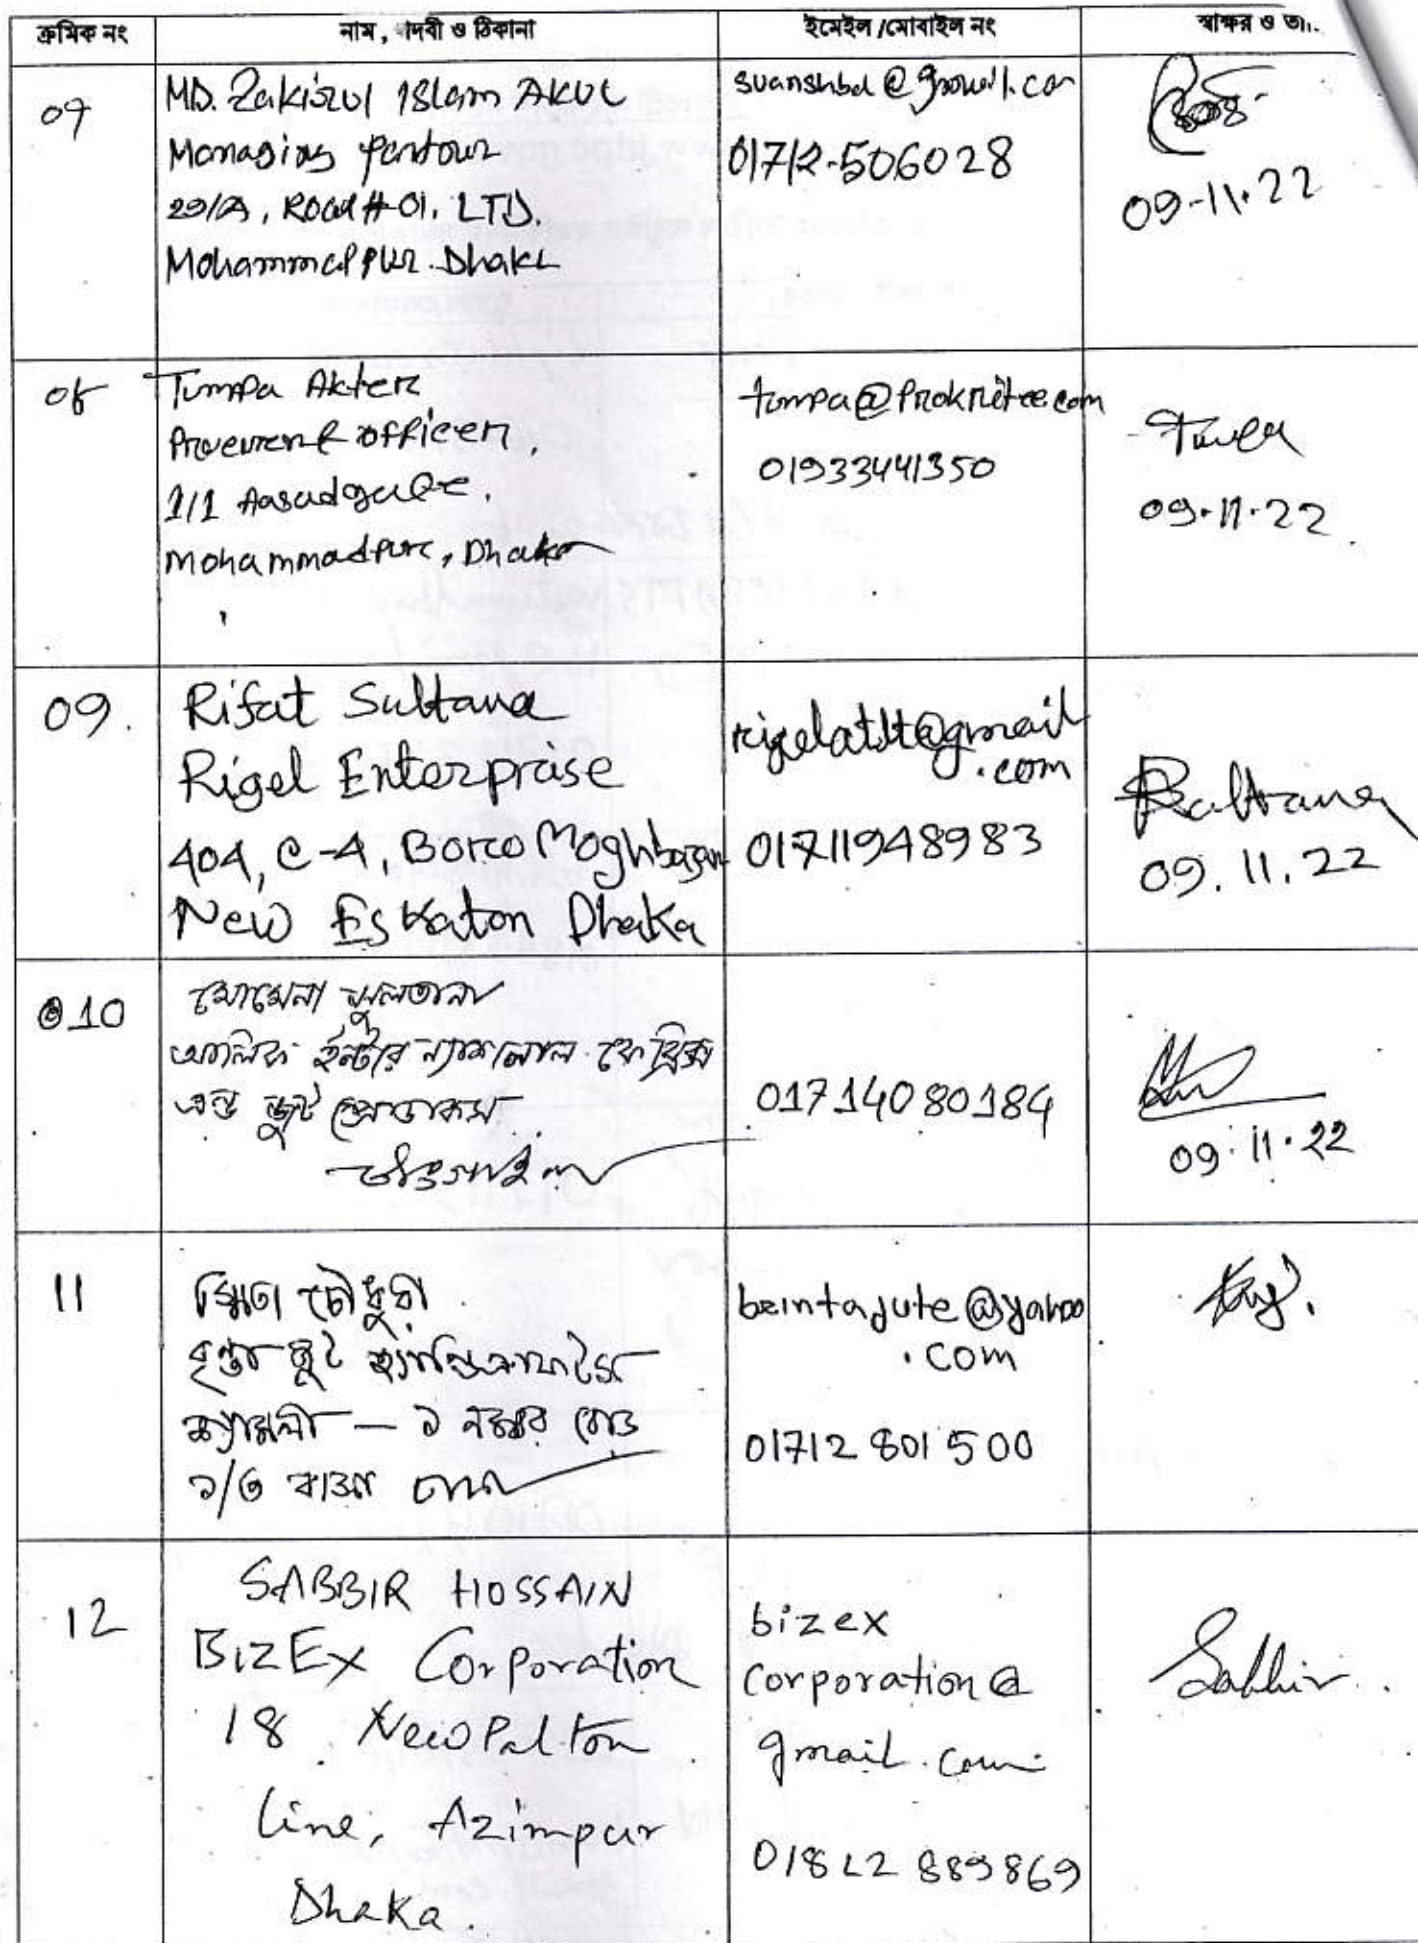 ক্রমিক নং
নাম, পদবী ও ঠিকানা
ইমেইল /মোবাইল নং
স্বাক্ষর ও তা..
07
MD. Zakirul Islam AKUL
Managing Partner
29/A, Road #01, LTD.
Mohammadpur. Dhaka
01712-506028
09-11-22
08
Tumpa Akter
officer,
1/1 Aasadgate,
Mohammadpur, Dhaka
tumpa@Prokritee.com
01933441350
09-11-22
09.
Rifat Sultana
Rigel Enterprise
404, C-4, Boro Moghbazar
New Eskaton Dhaka
@gmail
.com
01711948983
Rsultana
09.11.22
010
মোমেনা সুলতানা
আলিফ ইন্টার ন্যাশনাল ফেব্রিক্স
এন্ড জুট প্রোডাকস
টাঙ্গাইল
01714080184
09.11.22
11
স্মিতা চৌধুরী
বৃন্তা জুট হ্যান্ডিক্রাফটস
শ্যামলী — ১ নম্বর রোড
১/৩ বাসা
brintajute@yahoo
.com
01712 801 500
12
SABBIR HOSSAIN
BIZEX Corporation
18 New Palton
Line, Azimpur
Dhaka.
bizex
corporation@
gmail.com
01822 889869
Sabbir